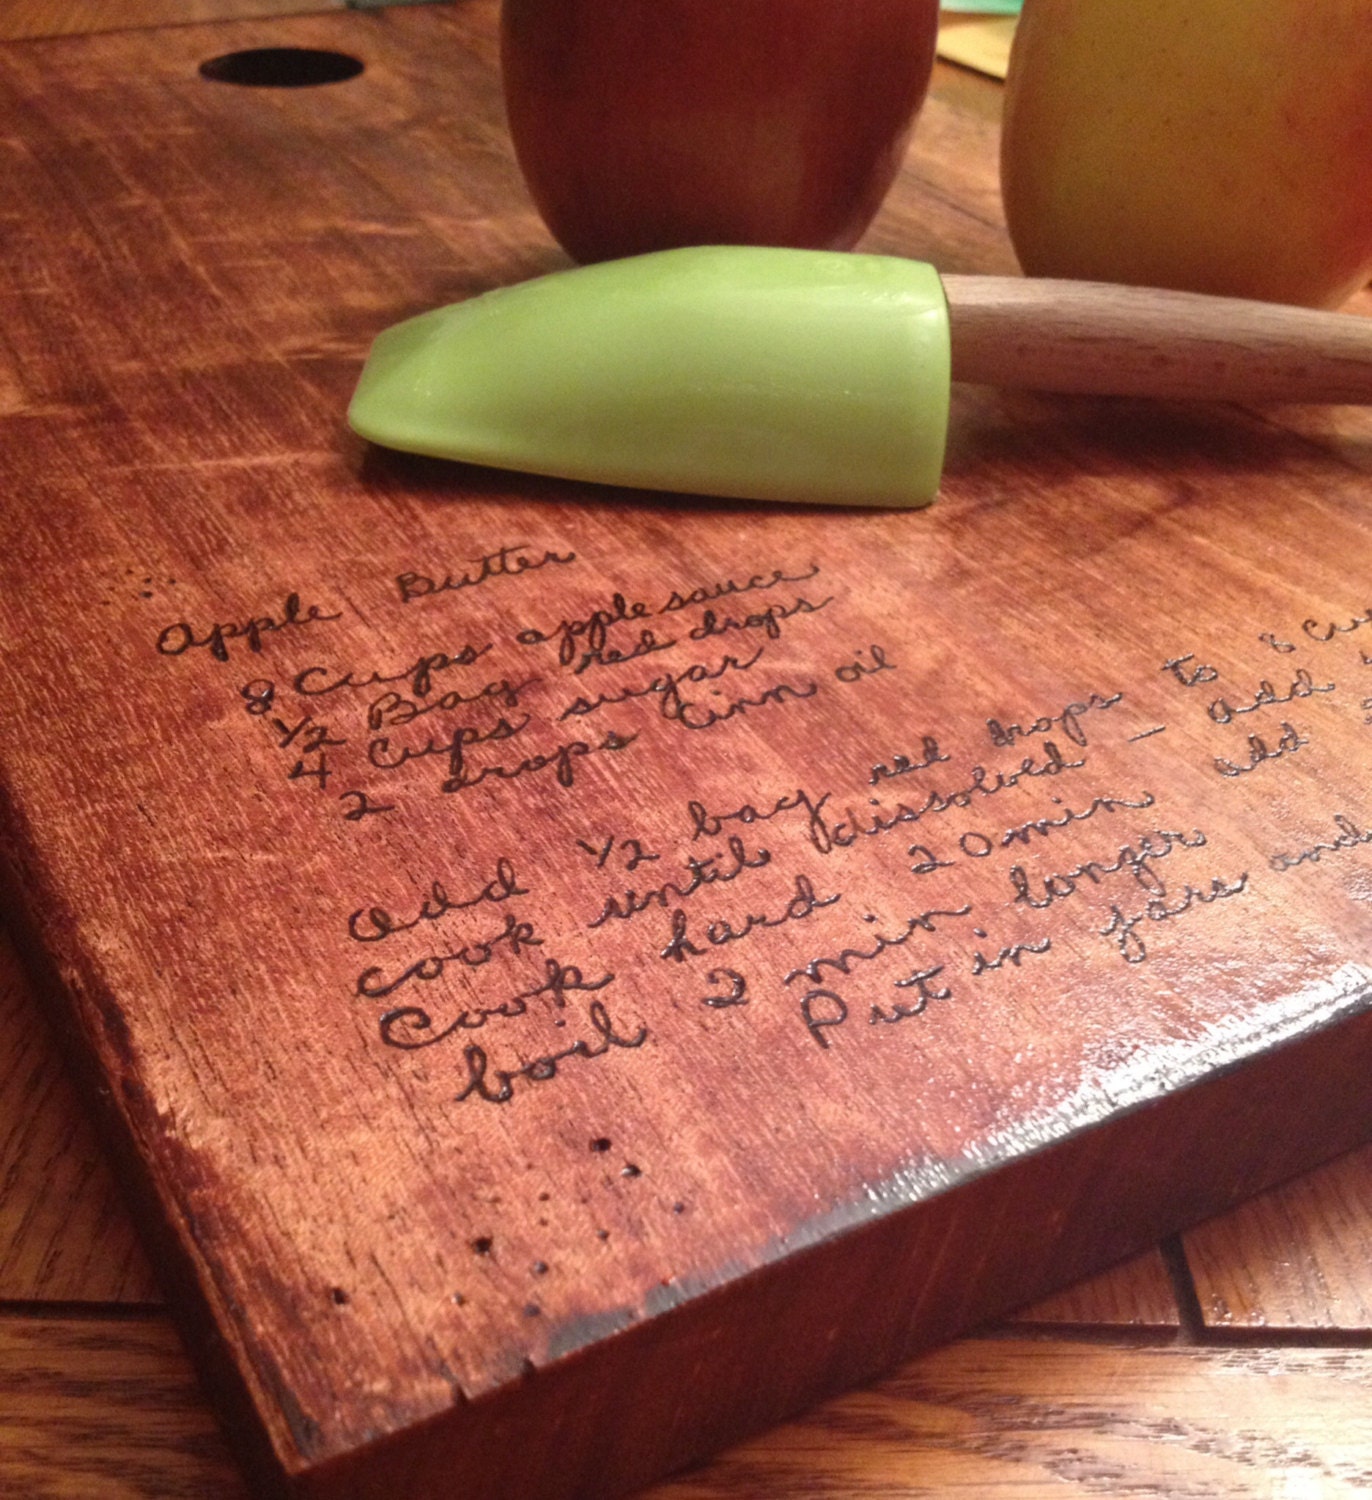 Apple Butter
8 Cups applesauce
1/2 Bag red drops
4 Cups sugar
2 drops Cinn oil
Add 1/2 bag red drops to 8 Cu
cook until dissolved — add
Cook hard 20 min add
boil 2 min longer
Put in jars and